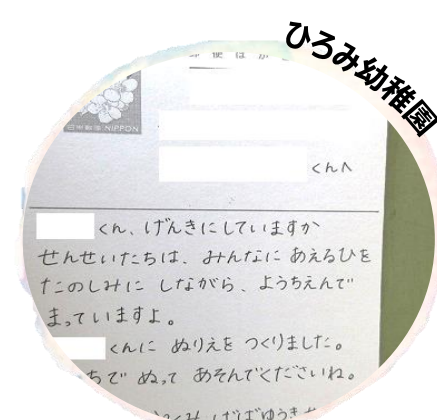 ひろみ幼稚園
郵便はが
日本郵便 NIPPON
くんへ
くん、げんきにしていますか
せんせいたちは、みんなに あえるひを
たのしみに しながら、ようちえんで
まっていますよ。
くんに ぬりえを つくりました。
ちで ぬって あそんでくださいね。